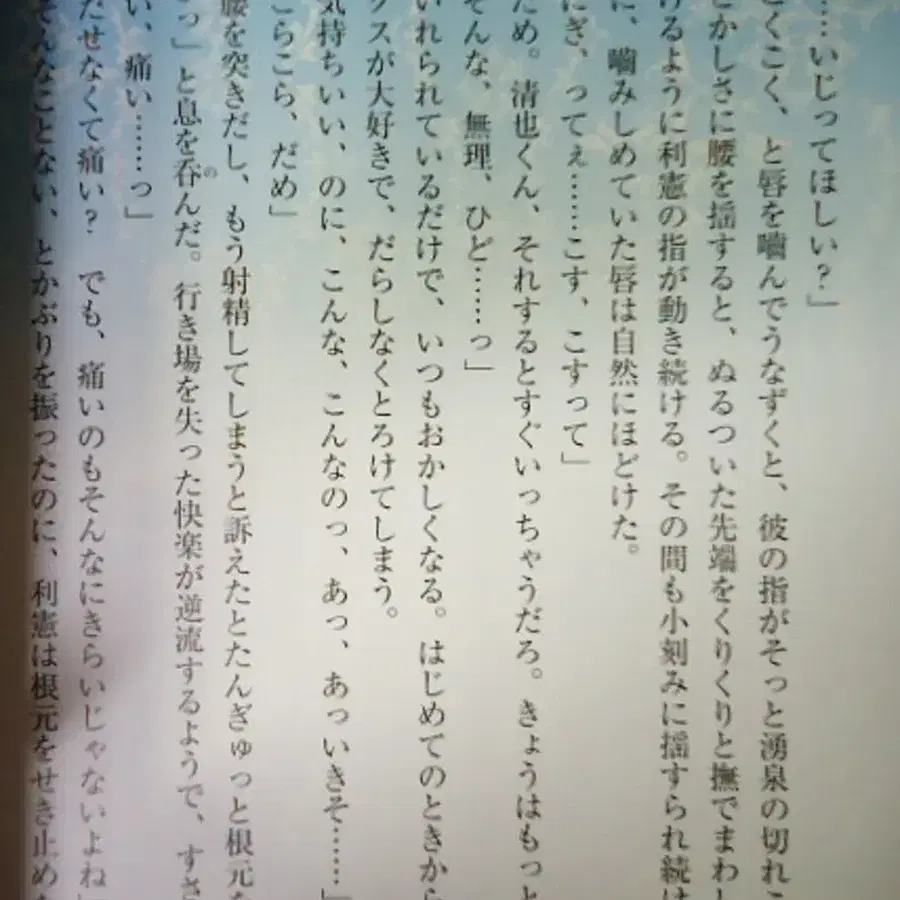 ……いじってほしい？」
こくこく、と唇を噛んでうなずくと、彼の指がそっと湧泉の切れこ
どかしさに腰を揺すると、ぬるついた先端をくりくりと撫でまわし
けるように利憲の指が動き続ける。その間も小刻みに揺すられ続け
に、噛みしめていた唇は自然にほどけた。
にぎ、ってぇ……こす、こすって」
だめ。清也くん、それするとすぐいっちゃうだろ。きょうはもっと
そんな、無理、ひど……っ」
いれられているだけで、いつもおかしくなる。はじめてのときから
クスが大好きで、だらしなくとろけてしまう。
気持ちいい、のに、こんな、こんなのっ、あっ、あっいきそ……」
こらこら、だめ」
腰を突きだし、もう射精してしまうと訴えたとたんぎゅっと根元を
っ」と息を呑んだ。行き場を失った快楽が逆流するようで、すさ
い、痛い……っ」
だせなくて痛い？　でも、痛いのもそんなにきらいじゃないよね」
そんなことない、とかぶりを振ったのに、利憲は根元をせき止め